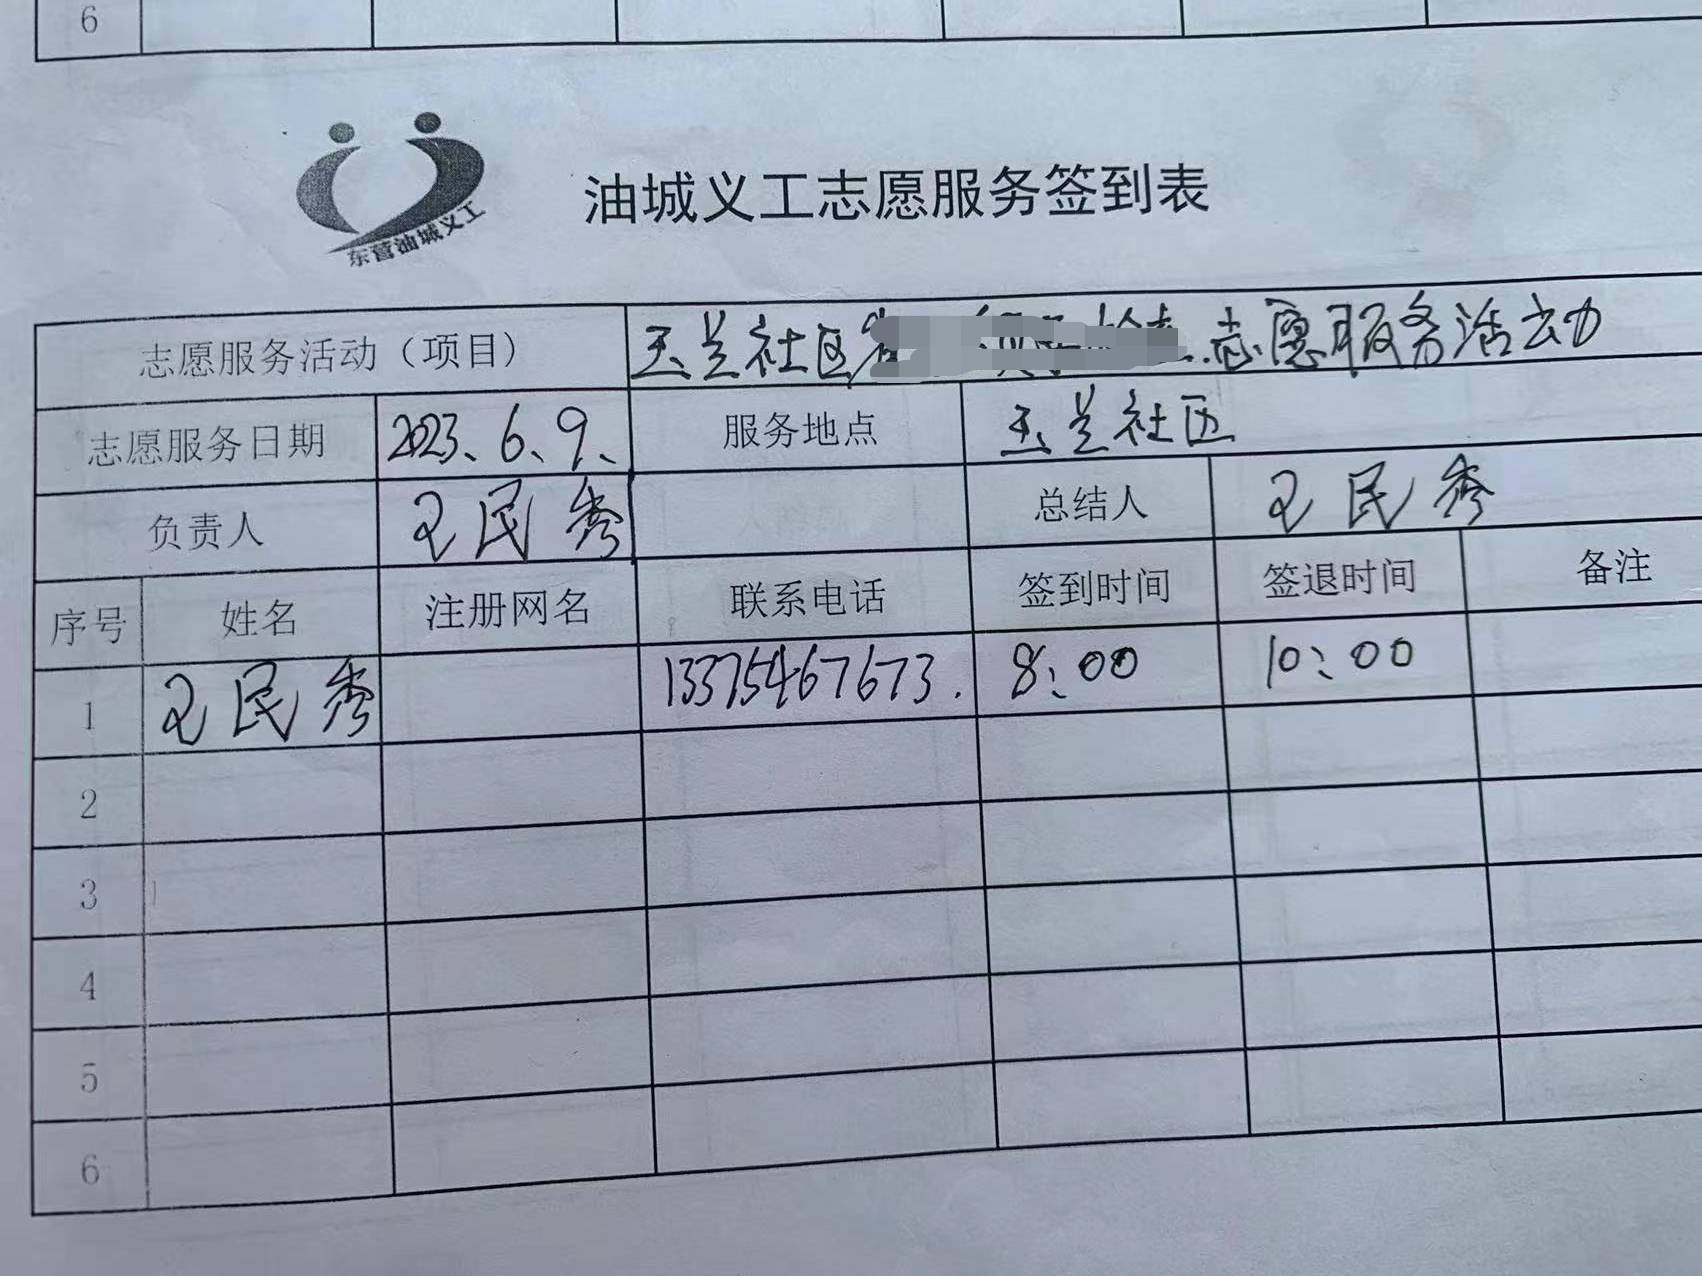 6
东营油城义工
油城义工志愿服务签到表
志愿服务活动（项目） 玉兰社区 志愿服务活动
志愿服务日期 2023、6、9、 服务地点 玉兰社区
负责人 王民秀 总结人 王民秀
序号 姓名 注册网名 联系电话 签到时间 签退时间 备注
1 王民秀 13375467673. 8:00 10:00
2
3
4
5
6